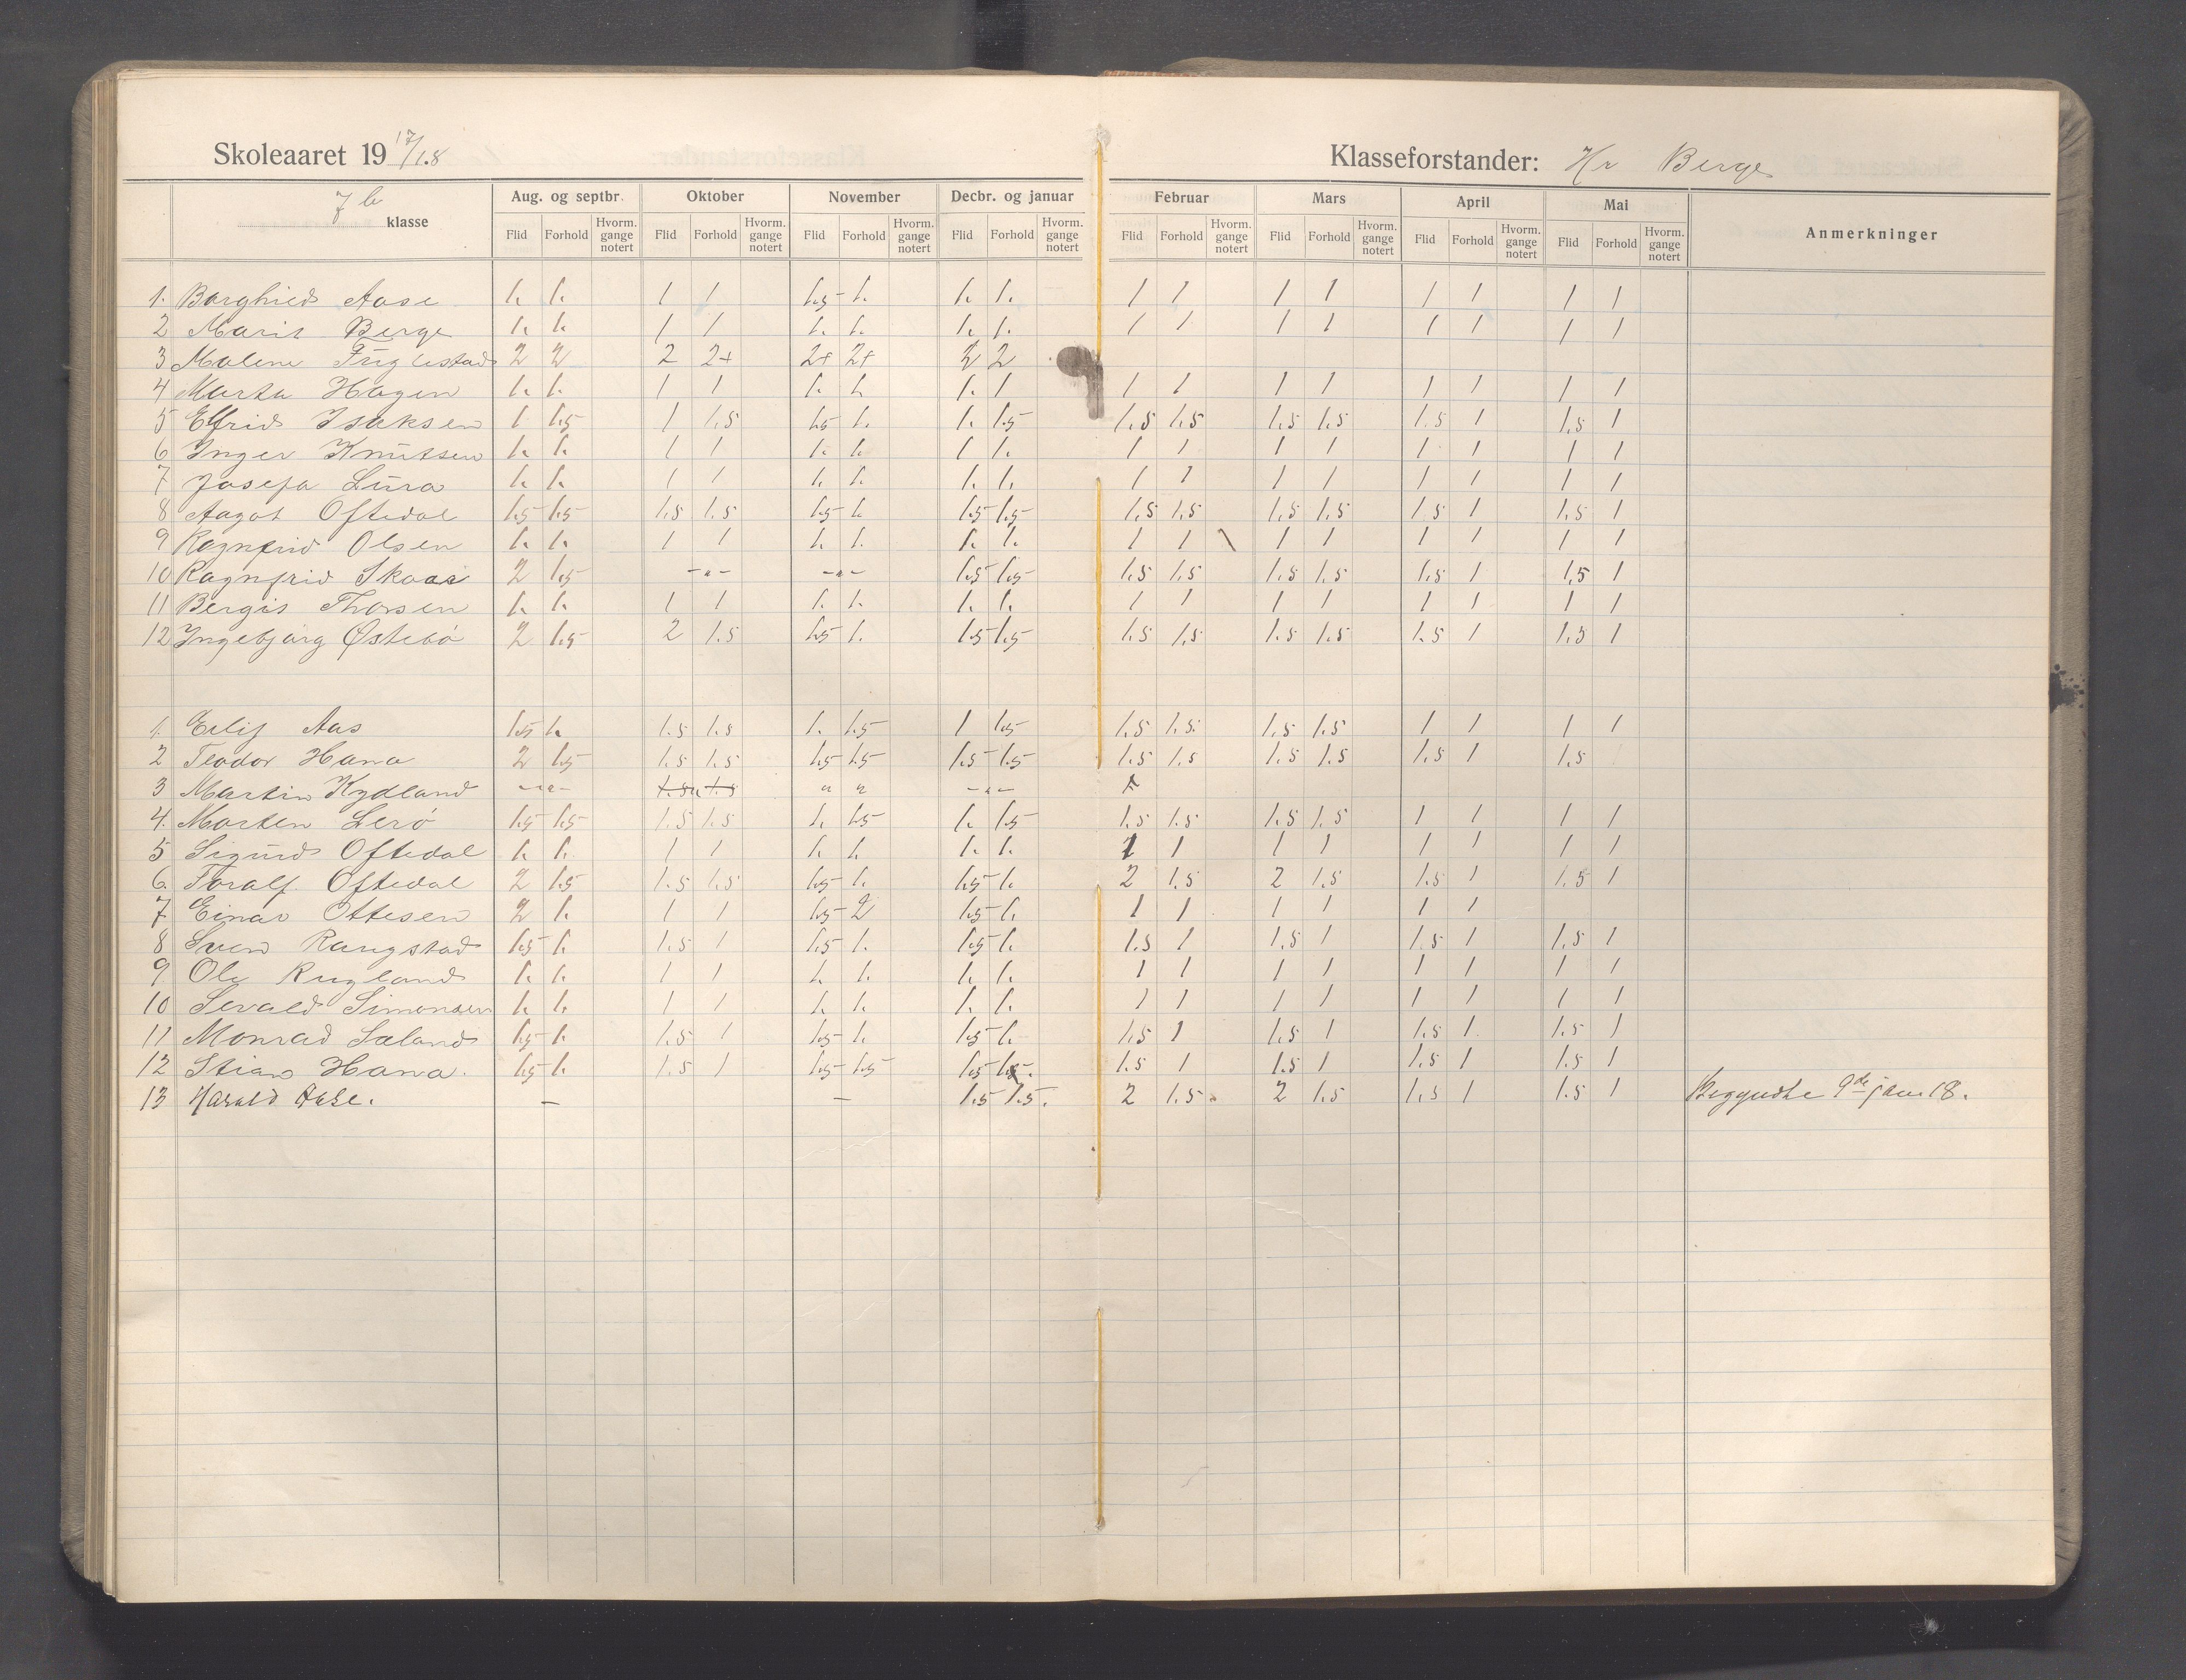 Skoleaaret 1917/18
Klasseforstander: Hr Berge
7b klasse
Aug. og septbr. Oktober November Decbr. og januar Februar Mars April Mai Anmerkninger
Flid Forhold Hvorm. gange notert Flid Forhold Hvorm. gange notert Flid Forhold Hvorm. gange notert Flid Forhold Hvorm. gange notert Flid Forhold Hvorm. gange notert Flid Forhold Hvorm. gange notert Flid Forhold Hvorm. gange notert Flid Forhold Hvorm. gange notert
1. Borghild Aase 1. 1. 1 1 1.5 1. 1. 1. 1 1 1 1 1 1 1 1
2 Marit Berge 1. 1. 1 1 1. 1. 1. 1. 1 1 1 1 1 1 1 1
3 Malene Fuglestad 2 2 2 2+ 2+ 2+ 2 2
4 Marta Hagen 1. 1. 1 1 1. 1. 1. 1 1 1 1 1 1 1 1 1
5 Elfrid Isaksen 1 1.5 1 1.5 1.5 1. 1. 1.5 1.5 1.5 1.5 1.5 1.5 1 1.5 1
6 Inger Knutsen 1. 1. 1 1 1. 1. 1 1. 1 1 1 1 1 1 1 1
7 Josefa Lura 1. 1. 1 1 1. 1. 1. 1. 1 1 1 1 1 1 1 1
8 Aagot Oftedal 1.5 1.5 1.5 1.5 1.5 1. 1.5 1.5 1.5 1.5 1.5 1.5 1.5 1 1.5 1
9 Ragnfrid Olsen 1. 1. 1 1 1. 1. 1. 1. 1 1 \ 1 1 1 1 1 1
10 Ragnfrid Skaar 2 1.5 -"- -"- 1.5 1.5 1.5 1.5 1.5 1.5 1.5 1 1.5 1
11 Bergit Thorsen 1. 1. 1 1 1. 1. 1. 1. 1 1 1 1 1 1 1 1
12 Ingebjørg Østebø 2 1.5 2 1.5 1.5 1. 1.5 1.5 1.5 1.5 1.5 1.5 1.5 1 1.5 1
1. Eilif Aas 1.5 1. 1.5 1.5 1. 1.5 1 1.5 1.5 1.5 1.5 1.5 1 1 1 1
2 Teodor Hana 2 1.5 1.5 1.5 1.5 1.5 1.5 1.5 1.5 1.5 1.5 1.5 1.5 1 1.5
3 Martin Kydland -"- 1.5 1.5 " " -"-
4. Morten Lerø 1.5 1.5 1.5 1.5 1. 1.5 1. 1.5 1.5 1.5 1.5 1.5 1 1 1 1
5 Sigurd Oftedal 1. 1. 1 1 1. 1. 1. 1. 1 1 1 1 1 1 1 1
6. Toralf Oftedal 2 1.5 1.5 1.5 1.5 1. 1.5 1. 2 1.5 2 1.5 1.5 1 1.5 1
7 Einar Ottesen 2 1. 1 1 1.5 2 1.5 1. 1 1 1 1 1 1
8 Sven Raugstad 1.5 1. 1.5 1 1.5 1. 1.5 1. 1.5 1 1.5 1 1.5 1 1.5 1
9 Ole Rugland 1. 1. 1 1 1. 1. 1. 1. 1 1 1 1 1 1 1 1
10 Sevald Simonsen 1. 1. 1 1 1. 1. 1. 1. 1 1 1 1 1 1 1 1
11 Monrad Sæland 1.5 1. 1.5 1 1.5 1. 1.5 1. 1.5 1 1.5 1 1.5 1 1.5 1
12 Stian Hana. 1.5 1. 1.5 1 1.5 1.5 1.5 1.5. 1.5 1 1.5 1 1.5 1 1.5 1
13 Harald Aase. - - 1.5 1.5. 2 1.5 2 1.5 1.5 1 1.5 1 Begyndte 9de jan. 18.